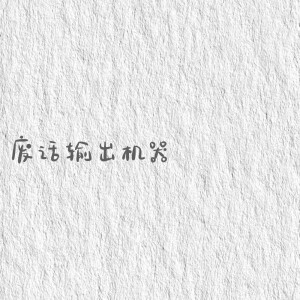 废话输出机器